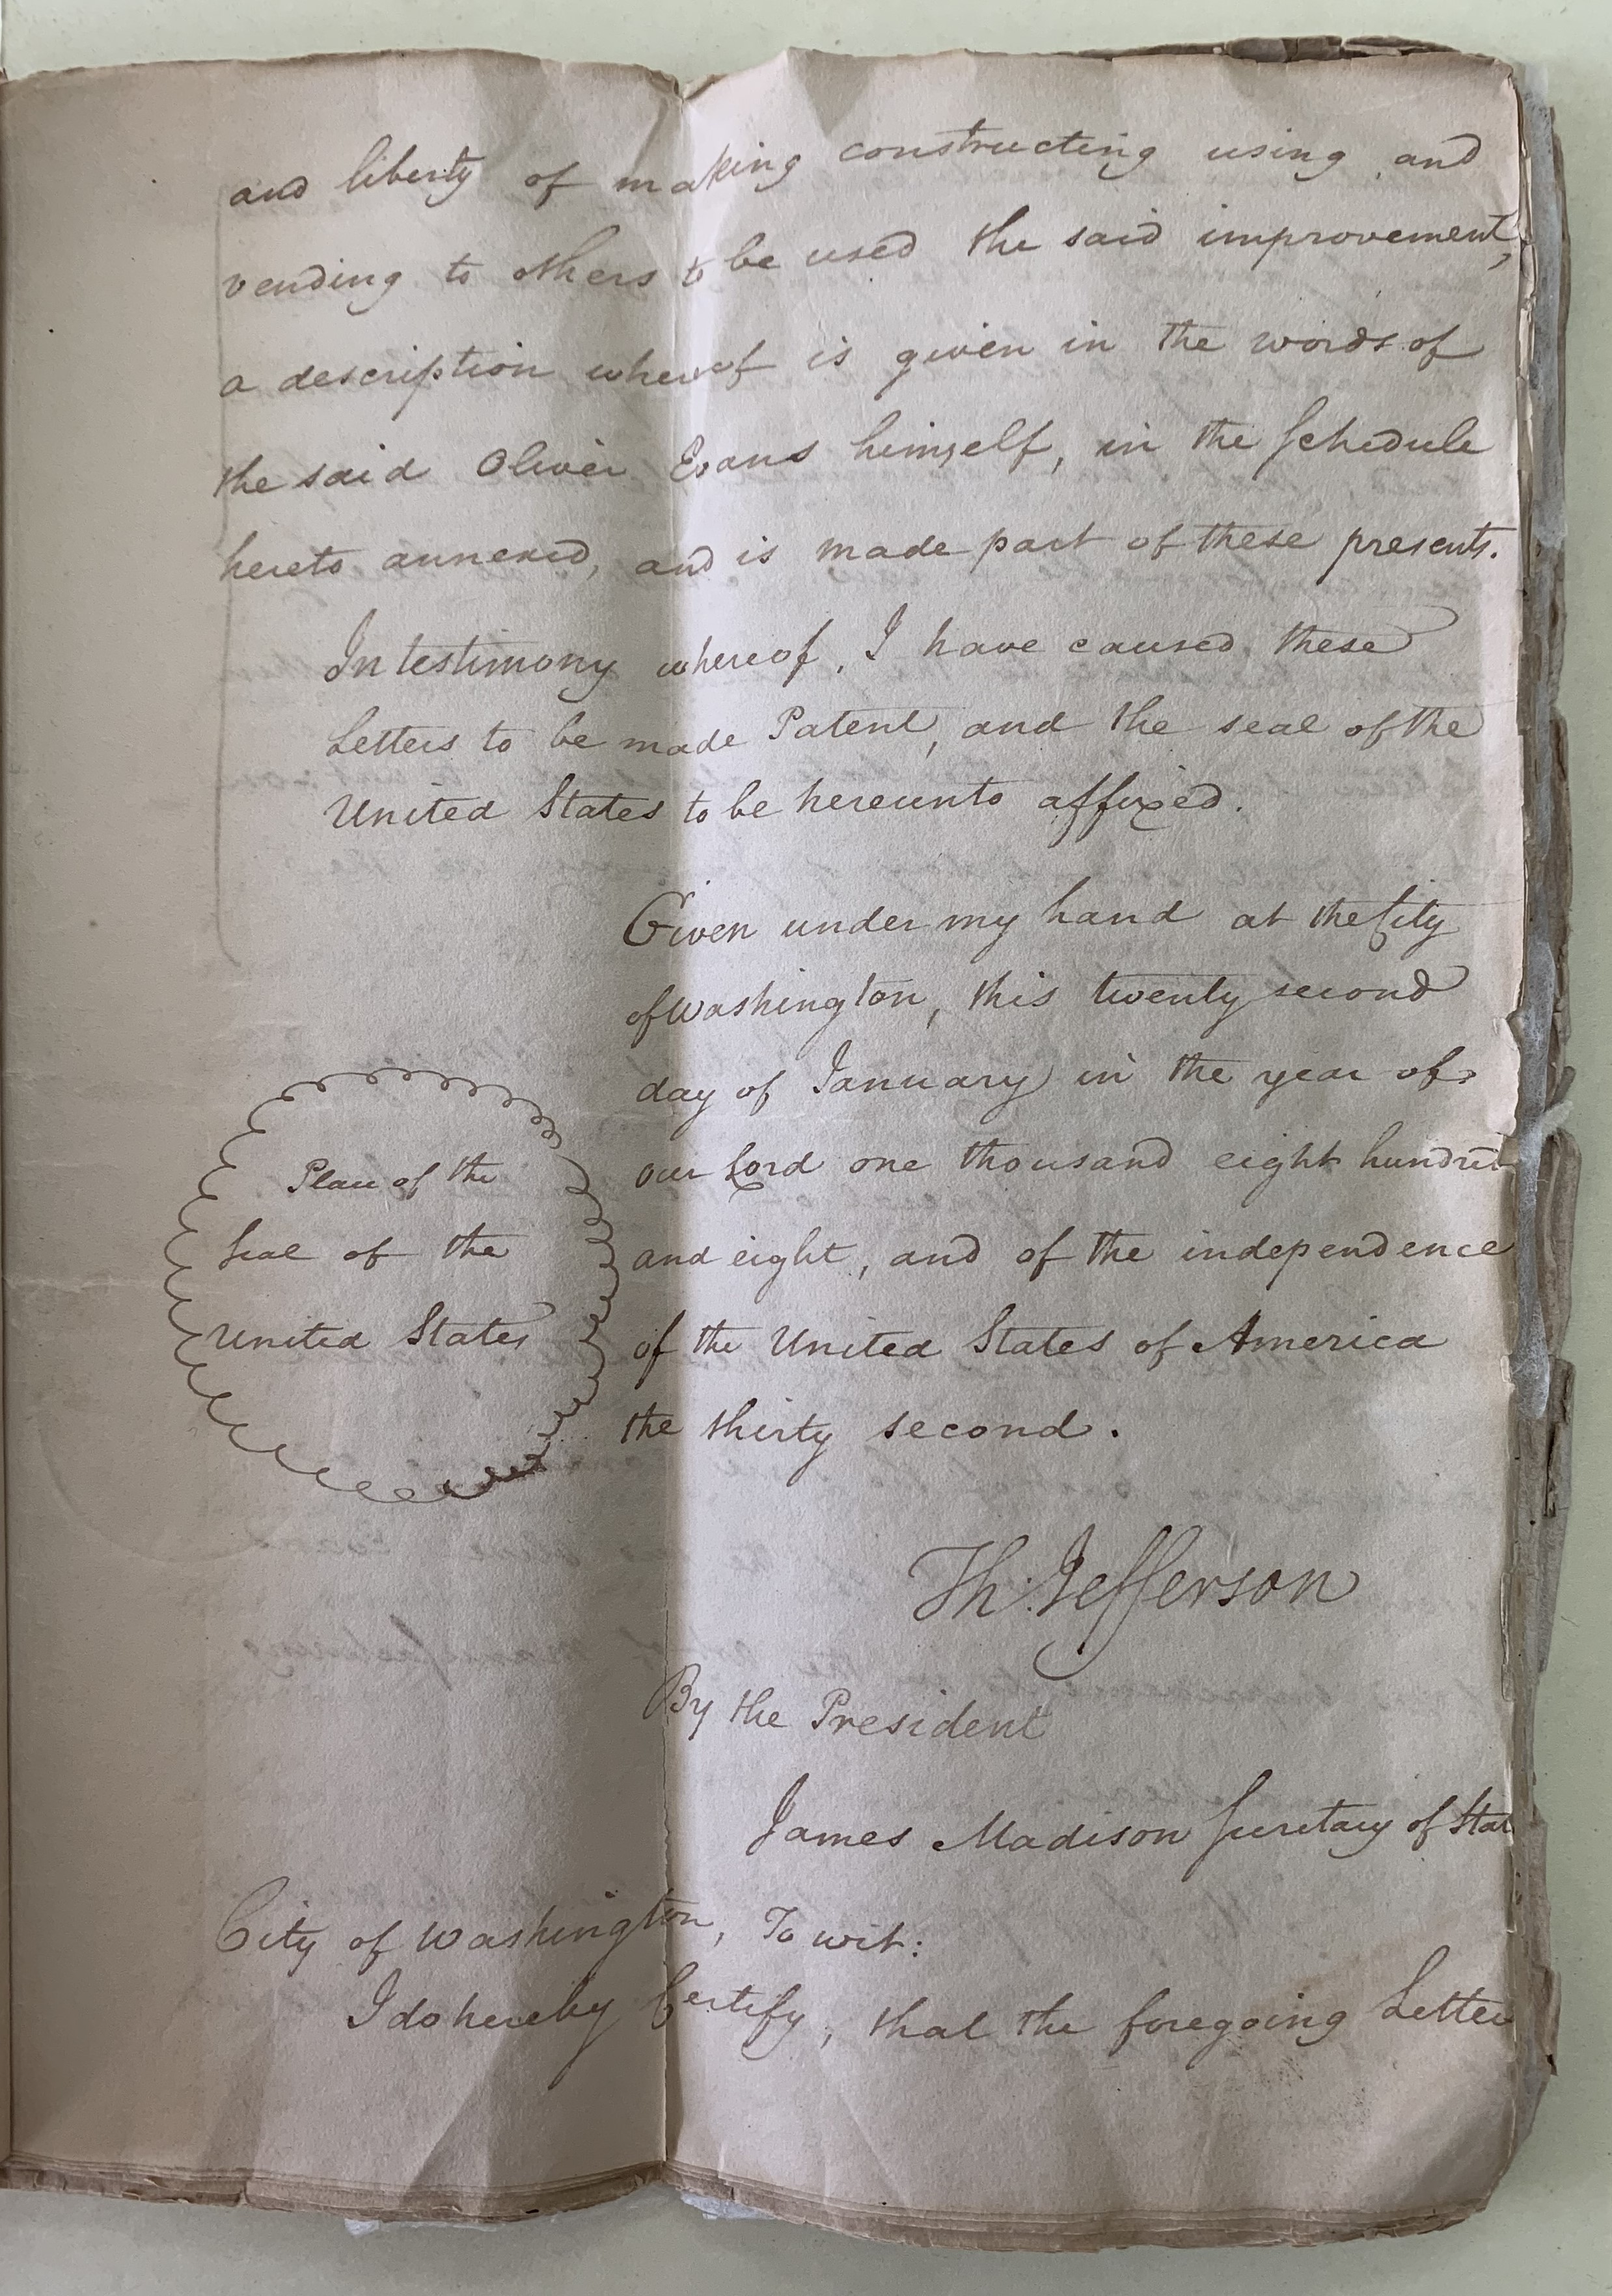 and liberty of making constructing using and
vending to others to be used the said improvement,
a description whereof is given in the words of
the said Oliver Evans himself, in the Schedule
hereto annexed, and is made part of these presents.
In testimony whereof, I have caused these
Letters to be made Patent, and the seal of the
United States to be hereunto affixed.
Given under my hand at the City
of Washington, this twenty second
day of January in the year of
our Lord one thousand eight hundred
and eight, and of the independence
of the United States of America
the thirty second.
Place of the
Seal of the
United States
Th: Jefferson
By the President
James Madison Secretary of State
City of Washington, To wit:
I do hereby Certify, that the foregoing Letters